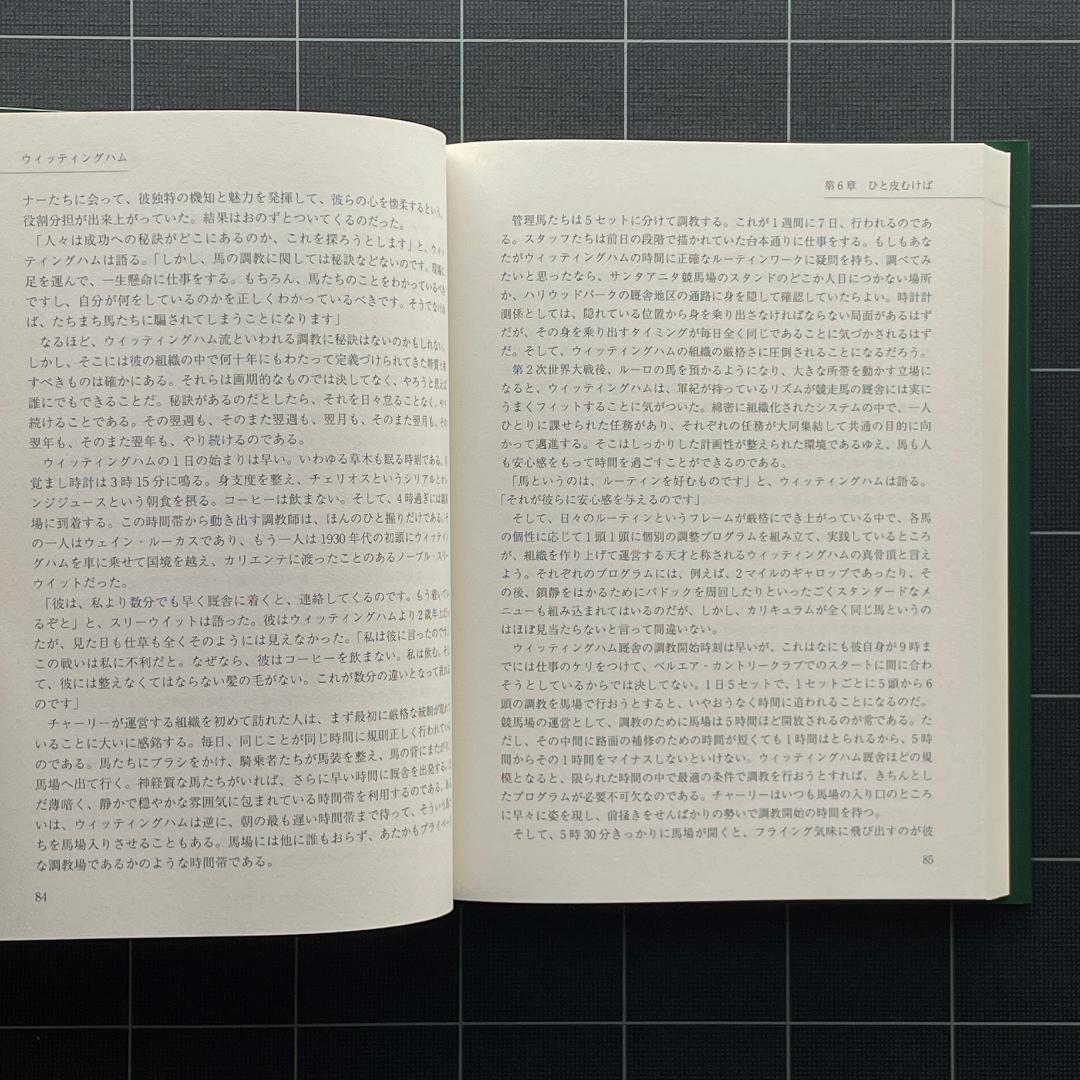 ウィッティングハム
ナーたちに会って、彼独特の機知と魅力を発揮して、彼らの心を懐柔するという、
役割分担が出来上がっていた。結果はおのずとついてくるのだった。
「人々は成功への秘訣がどこにあるのか、これを探ろうとします」と、ウィッ
ティングハムは語る。「しかし、馬の調教に関しては秘訣などないのです。現場に
足を運んで、一生懸命に仕事をする。もちろん、馬たちのことをわかっているべき
ですし、自分が何をしているのかを正しくわかっているべきです。そうでなけれ
ば、たちまち馬たちに騙されてしまうことになります」
なるほど、ウィッティングハム流といわれる調教に秘訣はないのかもしれない。
しかし、そこには彼の組織の中で何十年にもわたって定義づけられてきた特質と
すべきものは確かにある。それらは画期的なものでは決してなく、やろうと思えば
誰にでもできることだ。秘訣があるのだとしたら、それを日々怠ることなく、やり
続けることである。その翌週も、そのまた翌週も、翌月も、そのまた翌月も、その
翌年も、そのまた翌年も、やり続けるのである。
ウィッティングハムの1日の始まりは早い。いわゆる草木も眠る時刻である。
覚まし時計は3時15分に鳴る。身支度を整え、チェリオスというシリアルとオレ
ンジジュースという朝食を摂る。コーヒーは飲まない。そして、4時過ぎには
場に到着する。この時間帯から動き出す調教師は、ほんのひと握りだけである。そ
の一人はウェイン・ルーカスであり、もう一人は1930年代の初頭にウィッティン
グハムを車に乗せて国境を越え、カリエンテに渡ったことのあるノーブル・スリー
ウイットだった。
「彼は、私より数分でも早く厩舎に着くと、連絡してくるのです。もう着いて
るぞと」と、スリーウイットは語った。彼はウィッティングハムより2歳年上だっ
たが、見た目も仕草も全くそのようには見えなかった。「私は彼に言ったのです。
この戦いは私に不利だと。なぜなら、彼はコーヒーを飲まない。私は飲む。そし
て、彼には整えなくてはならない髪の毛がない。これが数分の違いとなって
のです」
チャーリーが運営する組織を初めて訪れた人は、まず最初に厳格な統制が取れて
いることに大いに感銘する。毎日、同じことが同じ時間に規則正しく行われている
のである。馬たちにブラシをかけ、騎乗者たちが馬装を整え、馬の背にまたがり、
馬場へ出て行く。神経質な馬たちがいれば、さらに早い時間に厩舎を出発する。ま
だ薄暗く、静かで穏やかな雰囲気に包まれている時間帯を利用するのである。ある
いは、ウィッティングハムは逆に、朝の最も遅い時間帯まで待って、そういう馬た
ちを馬場入りさせることもある。馬場には他に誰もおらず、あたかもプライベート
な調教場であるかのような時間帯である。
84
第6章 ひと皮むけば
管理馬たちは5セットに分けて調教する。これが1週間に7日、行われるのであ
る。スタッフたちは前日の段階で描かれていた台本通りに仕事をする。もしもあな
たがウィッティングハムの時間に正確なルーティンワークに疑問を持ち、調べてみ
たいと思ったなら、サンタアニタ競馬場のスタンドのどこか人目につかない場所
か、ハリウッドパークの厩舎地区の通路に身を隠して確認していたらよい。時計計
測係としては、隠れている位置から身を乗り出さなければならない局面があるはず
だが、その身を乗り出すタイミングが毎日全く同じであることに気づかされるはず
だ。そして、ウィッティングハムの組織の厳格さに圧倒されることになるだろう。
第2次世界大戦後、ルーロの馬を預かるようになり、大きな所帯を動かす立場に
なると、ウィッティングハムは、軍紀が持っているリズムが競走馬の厩舎には実に
うまくフィットすることに気がついた。綿密に組織化されたシステムの中で、一人
ひとりに課せられた任務があり、それぞれの任務が大同集結して共通の目的に向
かって邁進する。そこはしっかりした計画性が整えられた環境であるゆえ、馬も人
も安心感をもって時間を過ごすことができるのである。
「馬というのは、ルーティンを好むものです」と、ウィッティングハムは語る。
「それが彼らに安心感を与えるのです」
そして、日々のルーティンというフレームが厳格にでき上がっている中で、各馬
の個性に応じて1頭1頭に個別の調整プログラムを組み立て、実践しているところ
が、組織を作り上げて運営する天才と称されるウィッティングハムの真骨頂と言え
よう。それぞれのプログラムには、例えば、2マイルのギャロップであったり、そ
の後、鎮静をはかるためにパドックを周回したりといったごくスタンダードなメ
ニューも組み込まれてはいるのだが、しかし、カリキュラムが全く同じ馬というの
はほぼ見当たらないと言って間違いない。
ウィッティングハム厩舎の調教開始時刻は早いが、これはなにも彼自身が9時ま
でには仕事のケリをつけて、ベルエア・カントリークラブでのスタートに間に合わ
そうとしているからでは決してない。1日5セットで、1セットごとに5頭から6
頭の調教を馬場で行おうとすると、いやおうなく時間に追われることになるのだ。
競馬場の運営として、調教のために馬場は5時間ほど開放されるのが常である。た
だし、その中間に路面の補修のための時間が短くても1時間はとられるから、5時
間からその1時間をマイナスしないといけない。ウィッティングハム厩舎ほどの規
模となると、限られた時間の中で最適の条件で調教を行おうとすれば、きちんとし
たプログラムが必要不可欠なのである。チャーリーはいつも馬場の入り口のところ
に早々に姿を現し、前掻きをせんばかりの勢いで調教開始の時間を待つ。
そして、5時30分きっかりに馬場が開くと、フライング気味に飛び出すのが彼
85